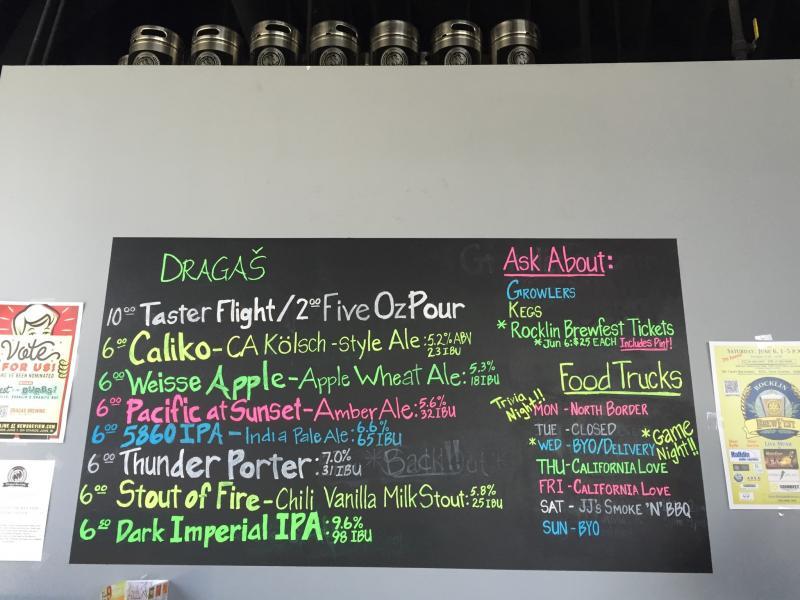 DRAGAŠ
10.00 Taster Flight / 2.00 Five Oz Pour
6.00 Caliko - CA Kölsch-style Ale: 5.2% ABV 23 IBU
6.00 Weisse Apple - Apple Wheat Ale: 5.3% 18 IBU
6.00 Pacific at Sunset - Amber Ale: 5.6% 32 IBU
6.00 5860 IPA - India Pale Ale: 6.6% 65 IBU
6.00 Thunder Porter: 7.0% 31 IBU
6.00 Stout of Fire - Chili Vanilla Milk Stout: 5.8% 25 IBU
6.50 Dark Imperial IPA: 9.6% 98 IBU
Ask About:
GROWLERS
KEGS
* Rocklin Brewfest Tickets
* Jun 6: $25 EACH Includes Pint!
Food Trucks
Trivia Night!!
MON - NORTH BORDER
TUE - CLOSED
* WED - BYO/DELIVERY
* Game Night!!
THU - CALIFORNIA LOVE
FRI - CALIFORNIA LOVE
SAT - JJ's SMOKE 'N' BBQ
SUN - BYO
Vote
FOR US!
SATURDAY, JUNE 6, 1-5 P.M.
ROCKLIN
BREWFEST